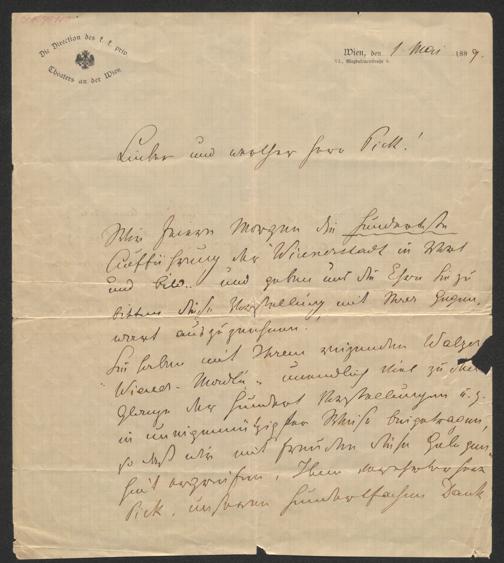 Die Direction des k. k. priv.
Theaters an der Wien
Wien, den 1 Mai 1889.
VI., Magdalenenstraße 8.
Lieber und werther Herr Pick!
Wir feiern Morgen die hundertste
Aufführung der "Wienerstadt in Wort
und Bild" und geben uns die Ehre Sie zu
bitten diese Vorstellung mit Ihrer Gegen-
wart auszuzeichnen.
Sie haben mit Ihrem reizenden Walzer
"Wiener-Madln" unendlich viel zu dem
Glanze der hundert Vorstellungen u. z.
in uneigennützigster Weise beigetragen,
so daß wir mit Freuden diese Gelegen-
heit ergreifen, Ihnen verehrter Herr
Pick, unseren hundertfachen Dank